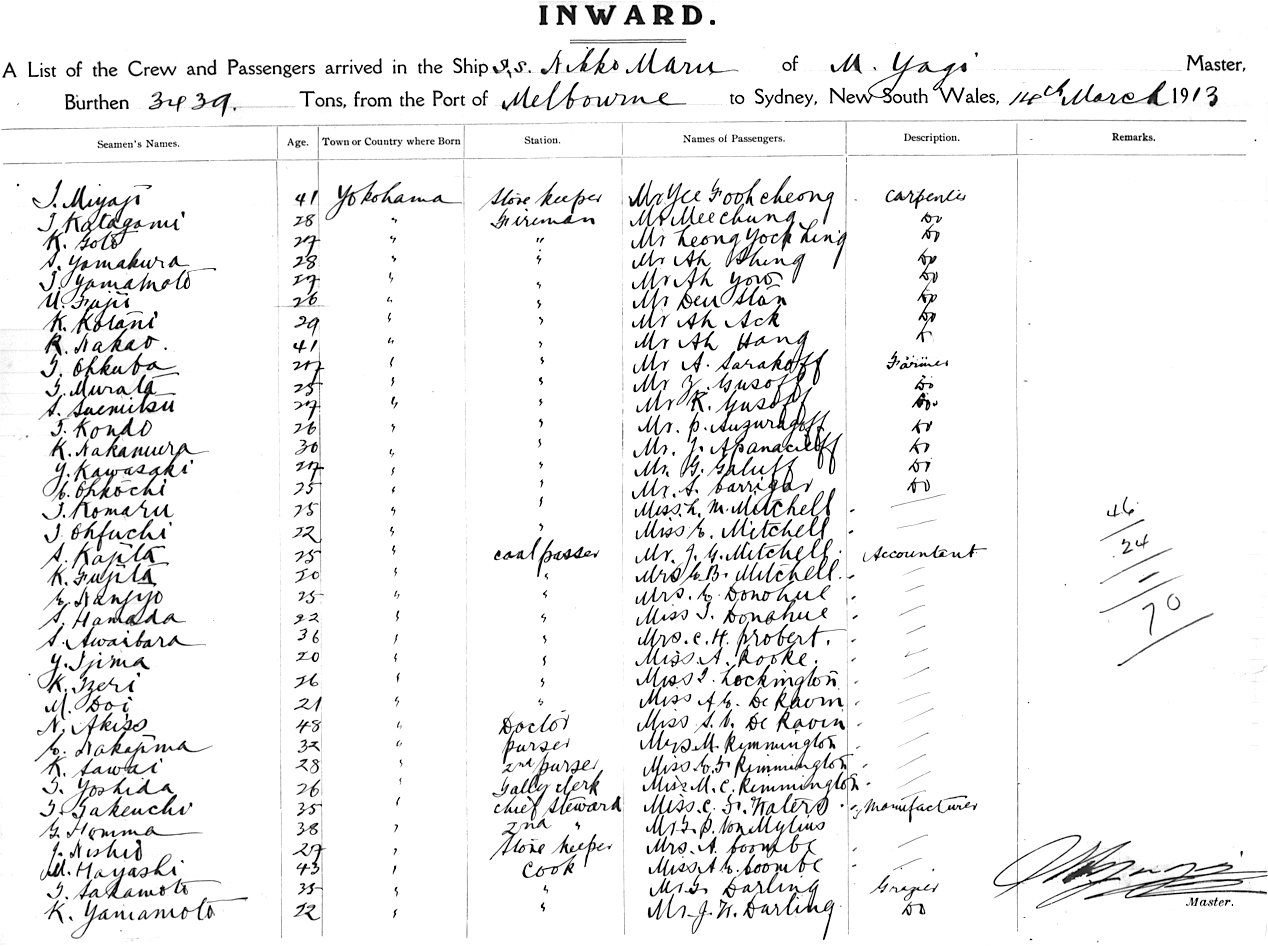 INWARD.
A List of the Crew and Passengers arrived in the Ship S.S. Nikko Maru of M. Yagi Master,
Burthen 3439. Tons, from the Port of Melbourne to Sydney, New South Wales, 14th March 1913
Seamen's Names. Age. Town or Country where Born Station. Names of Passengers. Description. Remarks.
T. Miyaji 41 Yokohama Store keeper Mr Yee Fooh cheong carpenter
T. Katagami 28 " Fireman Mr Mee chung Do
K. Goto 27 " " Mr Leong Yock Ling Do
S. Yamakura 28 " " Mr Ah Shing Do
T. Yamamoto 27 " " Mr Ah Yow Do
U. Fujii 26 " " Mr Deu Stan Do
K. Kotani 29 " " Mr Ah Ack Do
R. Nakao. 41 " " Mr Ah Hang Do
T. Ohkuba 27 " " Mr A. Sarakoff Farmer
T. Murata 25 " " Mr Y. Gusoff Do
S. Suemitsu 27 " " Mr K. Yusoff Do
T. Kondo 26 " " Mr. P. Auzuragoff Do
K. Nakamura 30 " " Mr. J. Apanaciloff Do
Y. Kawasaki 27 " " Mr. G. Galuff Do
Ohkochi 25 " " Mr. A. Carrigar Do
T. Komaru 25 " " Miss. L. M. Mitchell
T. Ohfuchi 22 " " Miss E. Mitchell
46
S. Kajita 25 " coal passer Mr. J. G. Mitchell. Accountant
24
K. Fujita 20 " " Mrs E. B. Mitchell.
E. Nanjyo 25 " " Mrs. E. Donohue
S. Hamada 22 " " Miss T. Donahue
70
S. Awaibara 36 " " Mrs. C. H. Probert.
Y. Ijima 20 " " Miss A. Rooke.
K. Izeri 26 " " Miss I. Lockington
M. Doi 21 " " Miss A. E. De Ravin
N. Akiso 48 " Doctor Miss S. V. De Ravin
E. Nakajima 32 " purser Mrs M. Remmington
K. Sawai 28 " 2nd purser Miss E. F. Remmington
T. Yoshida 26 " Gally clerk Miss M. C. Remmington
T. Takeuchi 35 " chief steward Miss. C. F. Waters Manufacturer
G. Homma 38 " 2nd " Mr F. P. Von Mylius
J. Nishio 27 " Store keeper Mrs. A. Coombe
M. Hayashi 43 " Cook Miss A. E. Coombe
T. Sakamoto 35 " " Mr F. Darling Grazier
K. Yamamoto 22 " " Mr. J. W. Darling Do
Master.